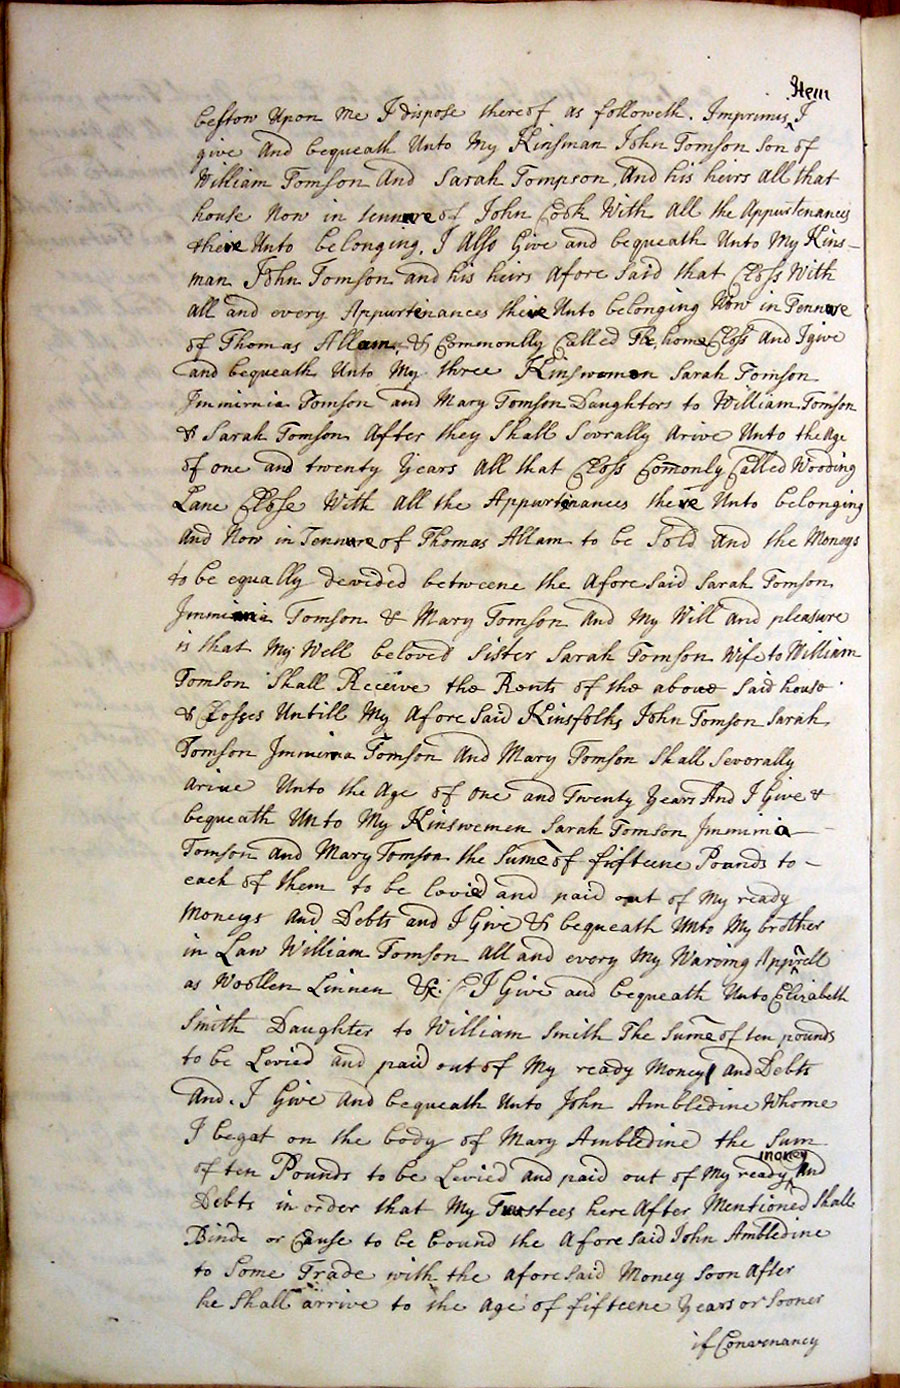 Item
bestow Upon me I dispose thereof as followeth. Imprimis I
give And bequeath Unto My Kinsman John Tomson Son of
William Tomson And Sarah Tompson, And his heirs All that
house Now in tennure of John Cook With All the Appurtenances
theire Unto belonging. I Also Give and bequeath Unto My Kins-
man John Tomson and his heirs Afore Said that Closs With
all and every Appurtenances theire Unto belonging Now in Tennure
of Thomas Allam, & Commonlly Called The home Closs And I give
and bequeath Unto My three Kinswomen Sarah Tomson
Jmmimia Tomson and Mary Tomson Daughters to William Tomson
& Sarah Tomson After they Shall Sevrally Arive Unto the Age
of one and twenty Years All that Closs Comonly Called Wooding
Lane Close With All the Appurtinances there Unto belonging
And Now in Tennure of Thomas Allam to be Sold and the Moneys
to be equally devided betweene the Afore Said Sarah Tomson
Jmmimia Tomson & Mary Tomson And My Will and pleasure
is that My Well beloved Sister Sarah Tomson Wife to William
Tomson Shall Receive the Rents of the above Said house
& Closses Untill My Afore Said Kinsfolks John Tomson Sarah
Tomson Jmmimia Tomson And Mary Tomson Shall Severally
Arive Unto the Age of one and Twenty Years And I Give &
bequeath Unto My Kinswemen Sarah Tomson Jmmimia
Tomson and Mary Tomson the Sume of fifteene Pounds to -
each of them to be levied and paid out of My ready
Moneys and Debts and I Give & bequeath Unto My brother
in Law William Tomson All and every My Waring Apprell
as Woollen Linnen &c: I Give and bequeath Unto Elizabeth
Smith Daughter to William Smith The Sume of ten pounds
to be Levied and paid out of My ready Money And Debts
And I Give And bequeath Unto John Ambledine Whome
I begat on the body of Mary Ambledine the Sum
of ten Pounds to be Levied and paid out of My ready money And
Debts in order that My Trustees here After Mentioned Shall
Binde or Cause to be bound the Afore Said John Ambledine
to Some Trade with the afore Said Money Soon After
he Shall arrive to the age of fifteene Years or Sooner
if Convenancy